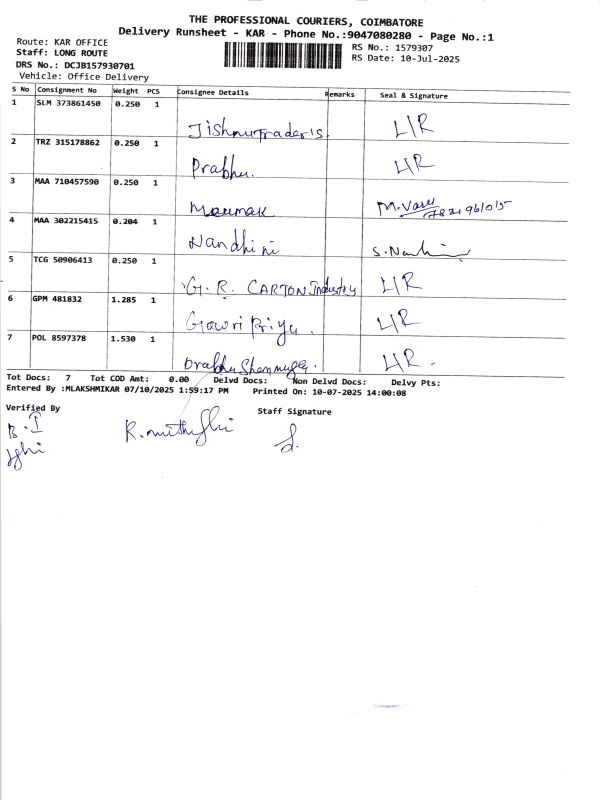 THE PROFESSIONAL COURIERS, COIMBATORE
Delivery Runsheet - KAR - Phone No.:9047080280 - Page No.:1
Route: KAR OFFICE
RS No.: 1579307
Staff: LONG ROUTE
RS Date: 10-Jul-2025
DRS No.: DCJB157930701
Vehicle: Office Delivery
S No Consignment No Weight PCS Consignee Details Remarks Seal & Signature
1 SLM 373861450 0.250 1 Jishnu Trader's L/R
2 TRZ 315178862 0.250 1 Prabhu. L/R
3 MAA 710457590 0.250 1 M. Vasu
4 MAA 302215415 0.204 1 Nandhini
5 TCG 50906413 0.250 1 G. R. CARTON Industry L/R
6 GPM 481832 1.285 1 Gowri Priya. L/R
7 POL 8597378 1.530 1 Prabhu L/R.
Tot Docs: 7 Tot COD Amt: 0.00 Delvd Docs: Non Delvd Docs: Delvy Pts:
Entered By :MLAKSHMIKAR 07/10/2025 1:59:17 PM Printed On: 10-07-2025 14:00:08
Verified By
Staff Signature